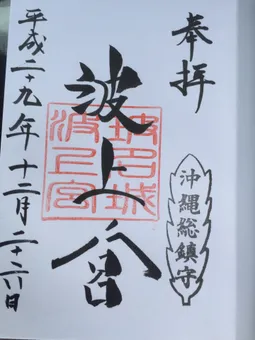 奉拝
沖縄総鎮守
波上宮
琉球国
波上宮
平成二十九年十二月二十六日